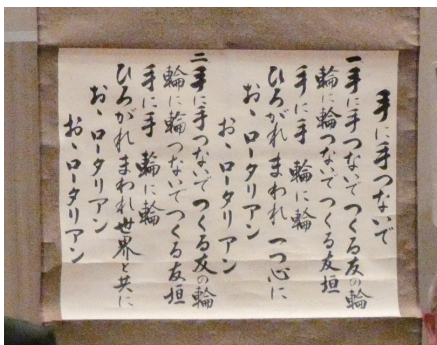 手に手つないで
一 手に手つないで つくる友の輪
輪に輪つないで つくる友垣
手に手 輪に輪
ひろがれ まわれ 一つ心に
おゝロータリアン
おゝロータリアン
二 手に手つないで つくる友の輪
輪に輪つないで つくる友垣
手に手 輪に輪
ひろがれ まわれ 世界と共に
おゝロータリアン
おゝロータリアン